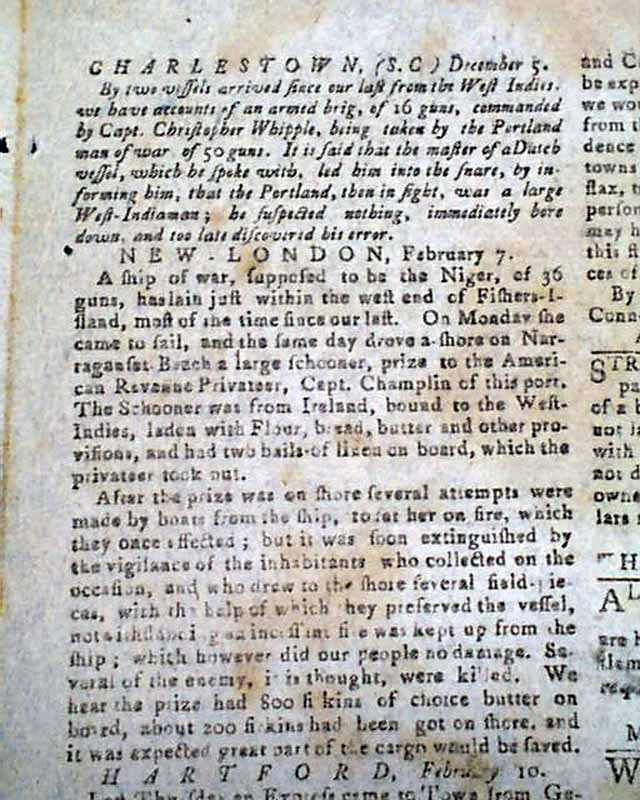 CHARLESTOWN, (S.C) December 5.
By two vessels arrived since our last from the West Indies,
we have accounts of an armed brig, of 16 guns, commanded
by Capt. Christopher Whipple, being taken by the Portland
man of war of 50 guns. It is said that the master of a Dutch
vessel, which he spoke with, led him into the snare, by in-
forming him, that the Portland, then in sight, was a large
West-Indiaman; he suspected nothing, immediately bore
down, and too late discovered his error.
NEW-LONDON, February 7.
A ship of war, supposed to be the Niger, of 36
guns, has lain just within the west end of Fishers-I-
sland, most of the time since our last. On Monday she
came to sail, and the same day drove a-shore on Nar-
raganset-Beach a large schooner, prize to the Ameri-
can Revenue Privateer, Capt. Champlin of this port.
The Schooner was from Ireland, bound to the West-
Indies, laden with Flour, bread, butter and other pro-
visions, and had two bails of linen on board, which the
privateer took out.
After the prize was on shore several attempts were
made by boats from the ship, to set her on fire, which
they once effected; but it was soon extinguished by
the vigilance of the inhabitants who collected on the
occasion, and who drew to the shore several field-pie-
ces, with the help of which they preserved the vessel,
notwithstanding an incessant fire was kept up from the
ship; which however did our people no damage. Se-
veral of the enemy, it is thought, were killed. We
hear the prize had 800 firkins of choice butter on
board, about 200 firkins had been got on shore, and
it was expected great part of the cargo would be saved.
HARTFORD, February 10.
Last Thursday an Express came to Town from Ge-
and C
be exp
we wo
from t
dence
towns
flax,
person
may h
this f
ces of
By
Conn
STR
pa
of a b
not l
with
not d
owne
lars
H
AL
are h
M
W